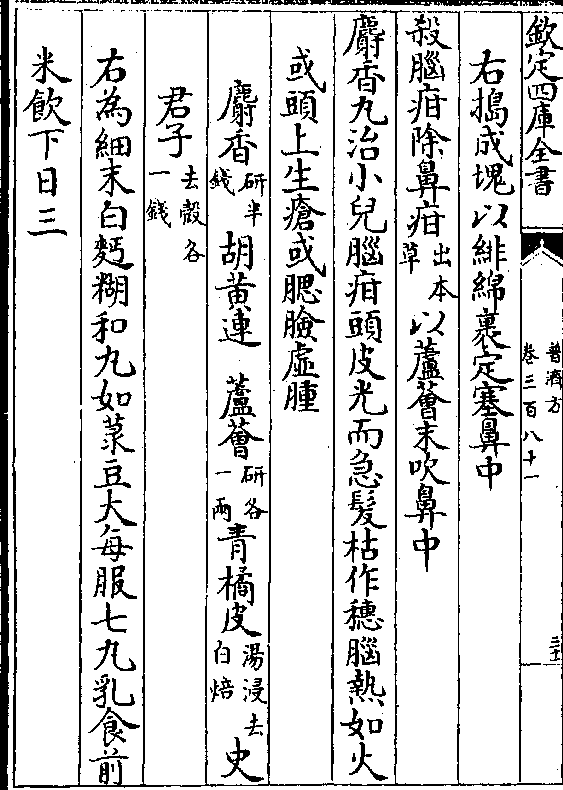 欽定四庫全書
普濟方
卷三百八十一
右搗成塊以緋綿裹定塞鼻中
殺腦疳除鼻疳出本草以蘆薈末吹鼻中
麝香丸治小兒腦疳頭皮光而急髮枯作穗腦熱如火
或頭上生瘡或腮臉虛腫
麝香研半錢胡黃連 蘆薈研各一兩青橘皮湯浸去白焙史
君子去殼各一錢
右為細末白麪糊和丸如菉豆大每服七丸乳食前
米飲下日三